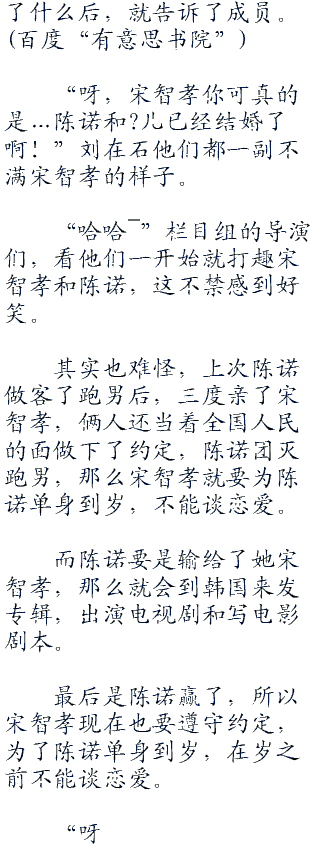 了什么后，就告诉了成员。
(百度“有意思书院”)
“呀，宋智孝你可真的
是…陈诺和?儿已经结婚了
啊！”刘在石他们都一副不
满宋智孝的样子。
“哈哈¯”栏目组的导演
们，看他们一开始就打趣宋
智孝和陈诺，这不禁感到好
笑。
其实也难怪，上次陈诺
做客了跑男后，三度亲了宋
智孝，俩人还当着全国人民
的面做下了约定，陈诺团灭
跑男，那么宋智孝就要为陈
诺单身到岁，不能谈恋爱。
而陈诺要是输给了她宋
智孝，那么就会到韩国来发
专辑，出演电视剧和写电影
剧本。
最后是陈诺赢了，所以
宋智孝现在也要遵守约定，
为了陈诺单身到岁，在岁之
前不能谈恋爱。
“呀